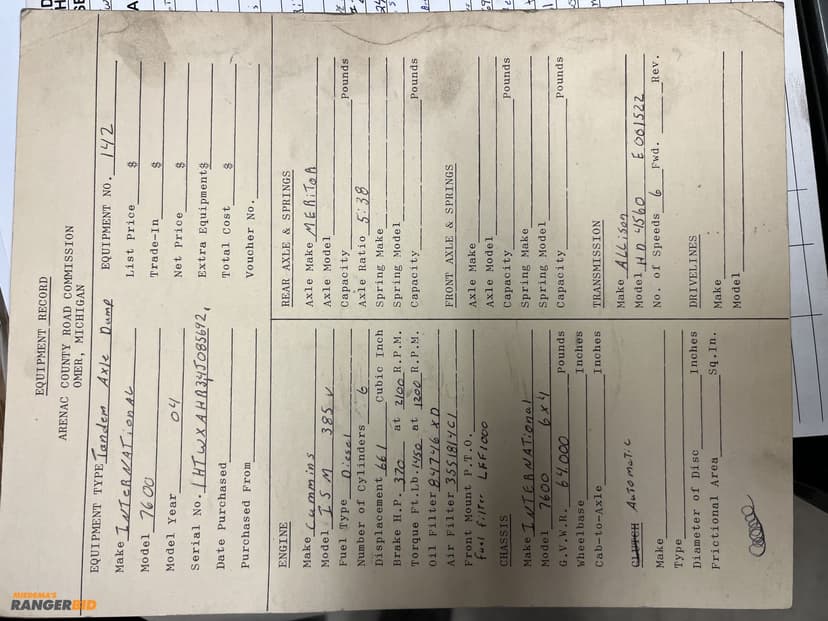 EQUIPMENT RECORD
ARENAC COUNTY ROAD COMMISSION
OMER, MICHIGAN
EQUIPMENT TYPE Tandem Axle Dump EQUIPMENT NO. 142
Make INTERNATIONAL List Price $
Model 7600 Trade-In $
Model Year 04 Net Price $
Serial No. 1HTWXAHR34J085692, Extra Equipment$
Date Purchased Total Cost $
Purchased From Voucher No.
ENGINE
Make Cummins
Model ISM 385 V
Fuel Type Diesel
Number of Cylinders 6
Displacement 661 Cubic Inch
Brake H.P. 370 at 2100 R.P.M.
Torque Ft.Lb. 1450 at 1200 R.P.M.
Oil Filter 84746 XD
Air Filter 3551814C1
Front Mount P.T.O.
Fuel Filter LFF1000
CHASSIS
Make INTERNATIONAL
Model 7600 6x4
G.V.W.R. 64,000 Pounds
Wheelbase Inches
Cab-to-Axle Inches
CLUTCH AUTOMATIC
Make
Type
Diameter of Disc Inches
Frictional Area Sq.In.
REAR AXLE & SPRINGS
Axle Make MERITOR
Axle Model
Capacity Pounds
Axle Ratio 5:38
Spring Make
Spring Model
Capacity Pounds
FRONT AXLE & SPRINGS
Axle Make
Axle Model
Capacity Pounds
Spring Make
Spring Model
Capacity Pounds
TRANSMISSION
Make ALLISON
Model HD 4560 E 001522
No. of Speeds 6 Fwd. Rev.
DRIVELINES
Make
Model
MIEDEMA'S
RANGERBID